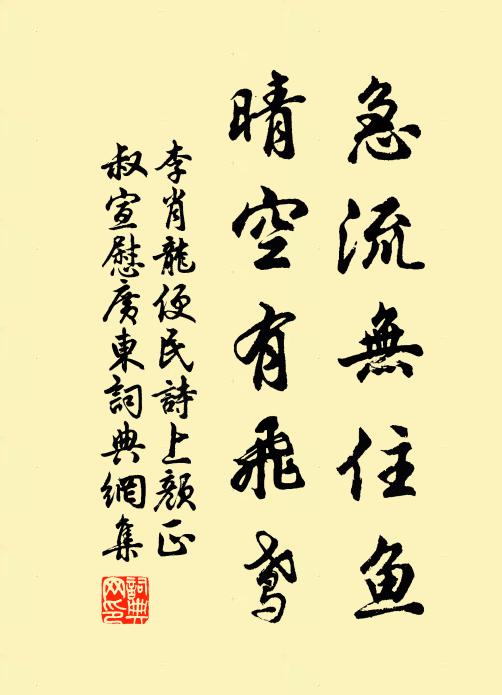 急流無住魚
晴空有飛鳶
李肖龍便民詩上顏正
叔宣慰廣東詞典網集